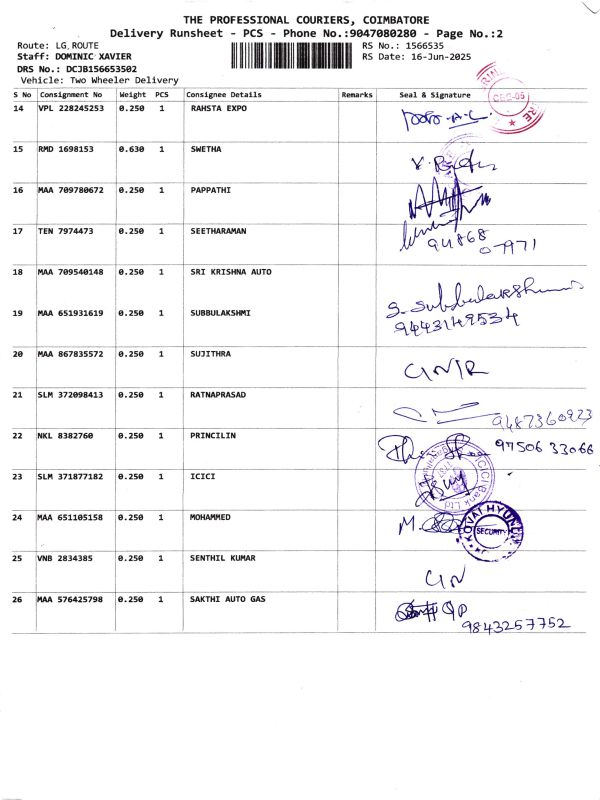 THE PROFESSIONAL COURIERS, COIMBATORE
Delivery Runsheet - PCS - Phone No.:9047080280 - Page No.:2
Route: LG ROUTE RS No.: 1566535
Staff: DOMINIC XAVIER RS Date: 16-Jun-2025
DRS No.: DCJB156653502
Vehicle: Two Wheeler Delivery
S No Consignment No Weight PCS Consignee Details Remarks Seal & Signature
14 VPL 228245253 0.250 1 RAHSTA EXPO
15 RMD 1698153 0.630 1 SWETHA
16 MAA 709780672 0.250 1 PAPPATHI
17 TEN 7974473 0.250 1 SEETHARAMAN
94868
07971
18 MAA 709540148 0.250 1 SRI KRISHNA AUTO
19 MAA 651931619 0.250 1 SUBBULAKSHMI
S. Subbulakshmi
9443149534
20 MAA 867835572 0.250 1 SUJITHRA
21 SLM 372098413 0.250 1 RATNAPRASAD
9487360923
22 NKL 8382760 0.250 1 PRINCILIN
97506 33066
23 SLM 371877182 0.250 1 ICICI
ICICI Bank Ltd
24 MAA 651105158 0.250 1 MOHAMMED
KOVAI HYUN
SECURITY
25 VNB 2834385 0.250 1 SENTHIL KUMAR
26 MAA 576425798 0.250 1 SAKTHI AUTO GAS
9843257752